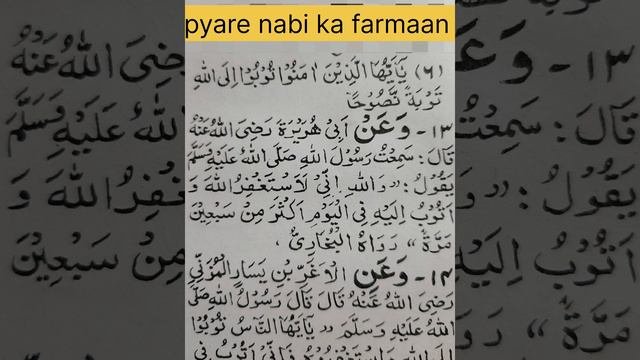 pyare nabi ka farmaan
(٦) يٰٓاَيُّهَا الَّذِيْنَ اٰمَنُوْا تُوْبُوْا اِلَى اللهِ
تَوْبَةً نَّصُوْحًا
١٣- وَعَنْ اَبِيْ هُرَيْرَةَ رَضِيَ اللهُ عَنْهُ
قَالَ: سَمِعْتُ رَسُوْلَ اللهِ صَلَّى اللهُ عَلَيْهِ وَسَلَّمَ
يَقُوْلُ: "وَاللهِ اِنِّيْ لَاَسْتَغْفِرُ اللهَ وَ
اَتُوْبُ اِلَيْهِ فِى الْيَوْمِ اَكْثَرَ مِنْ سَبْعِيْنَ
مَرَّةً" رَوَاهُ الْبُخَارِيُّ
١٤- وَعَنِ الْاَغَرِّ بْنِ يَسَارِ الْمُزَنِيِّ
رَضِيَ اللهُ عَنْهُ قَالَ قَالَ رَسُوْلُ اللهِ صَلَّى
اللهُ عَلَيْهِ وَسَلَّمَ "يٰٓاَيُّهَا النَّاسُ تُوْبُوْا
اِلَى اللهِ وَاسْتَغْفِرُوْهُ فَاِنِّيْ اَتُوْبُ فِى